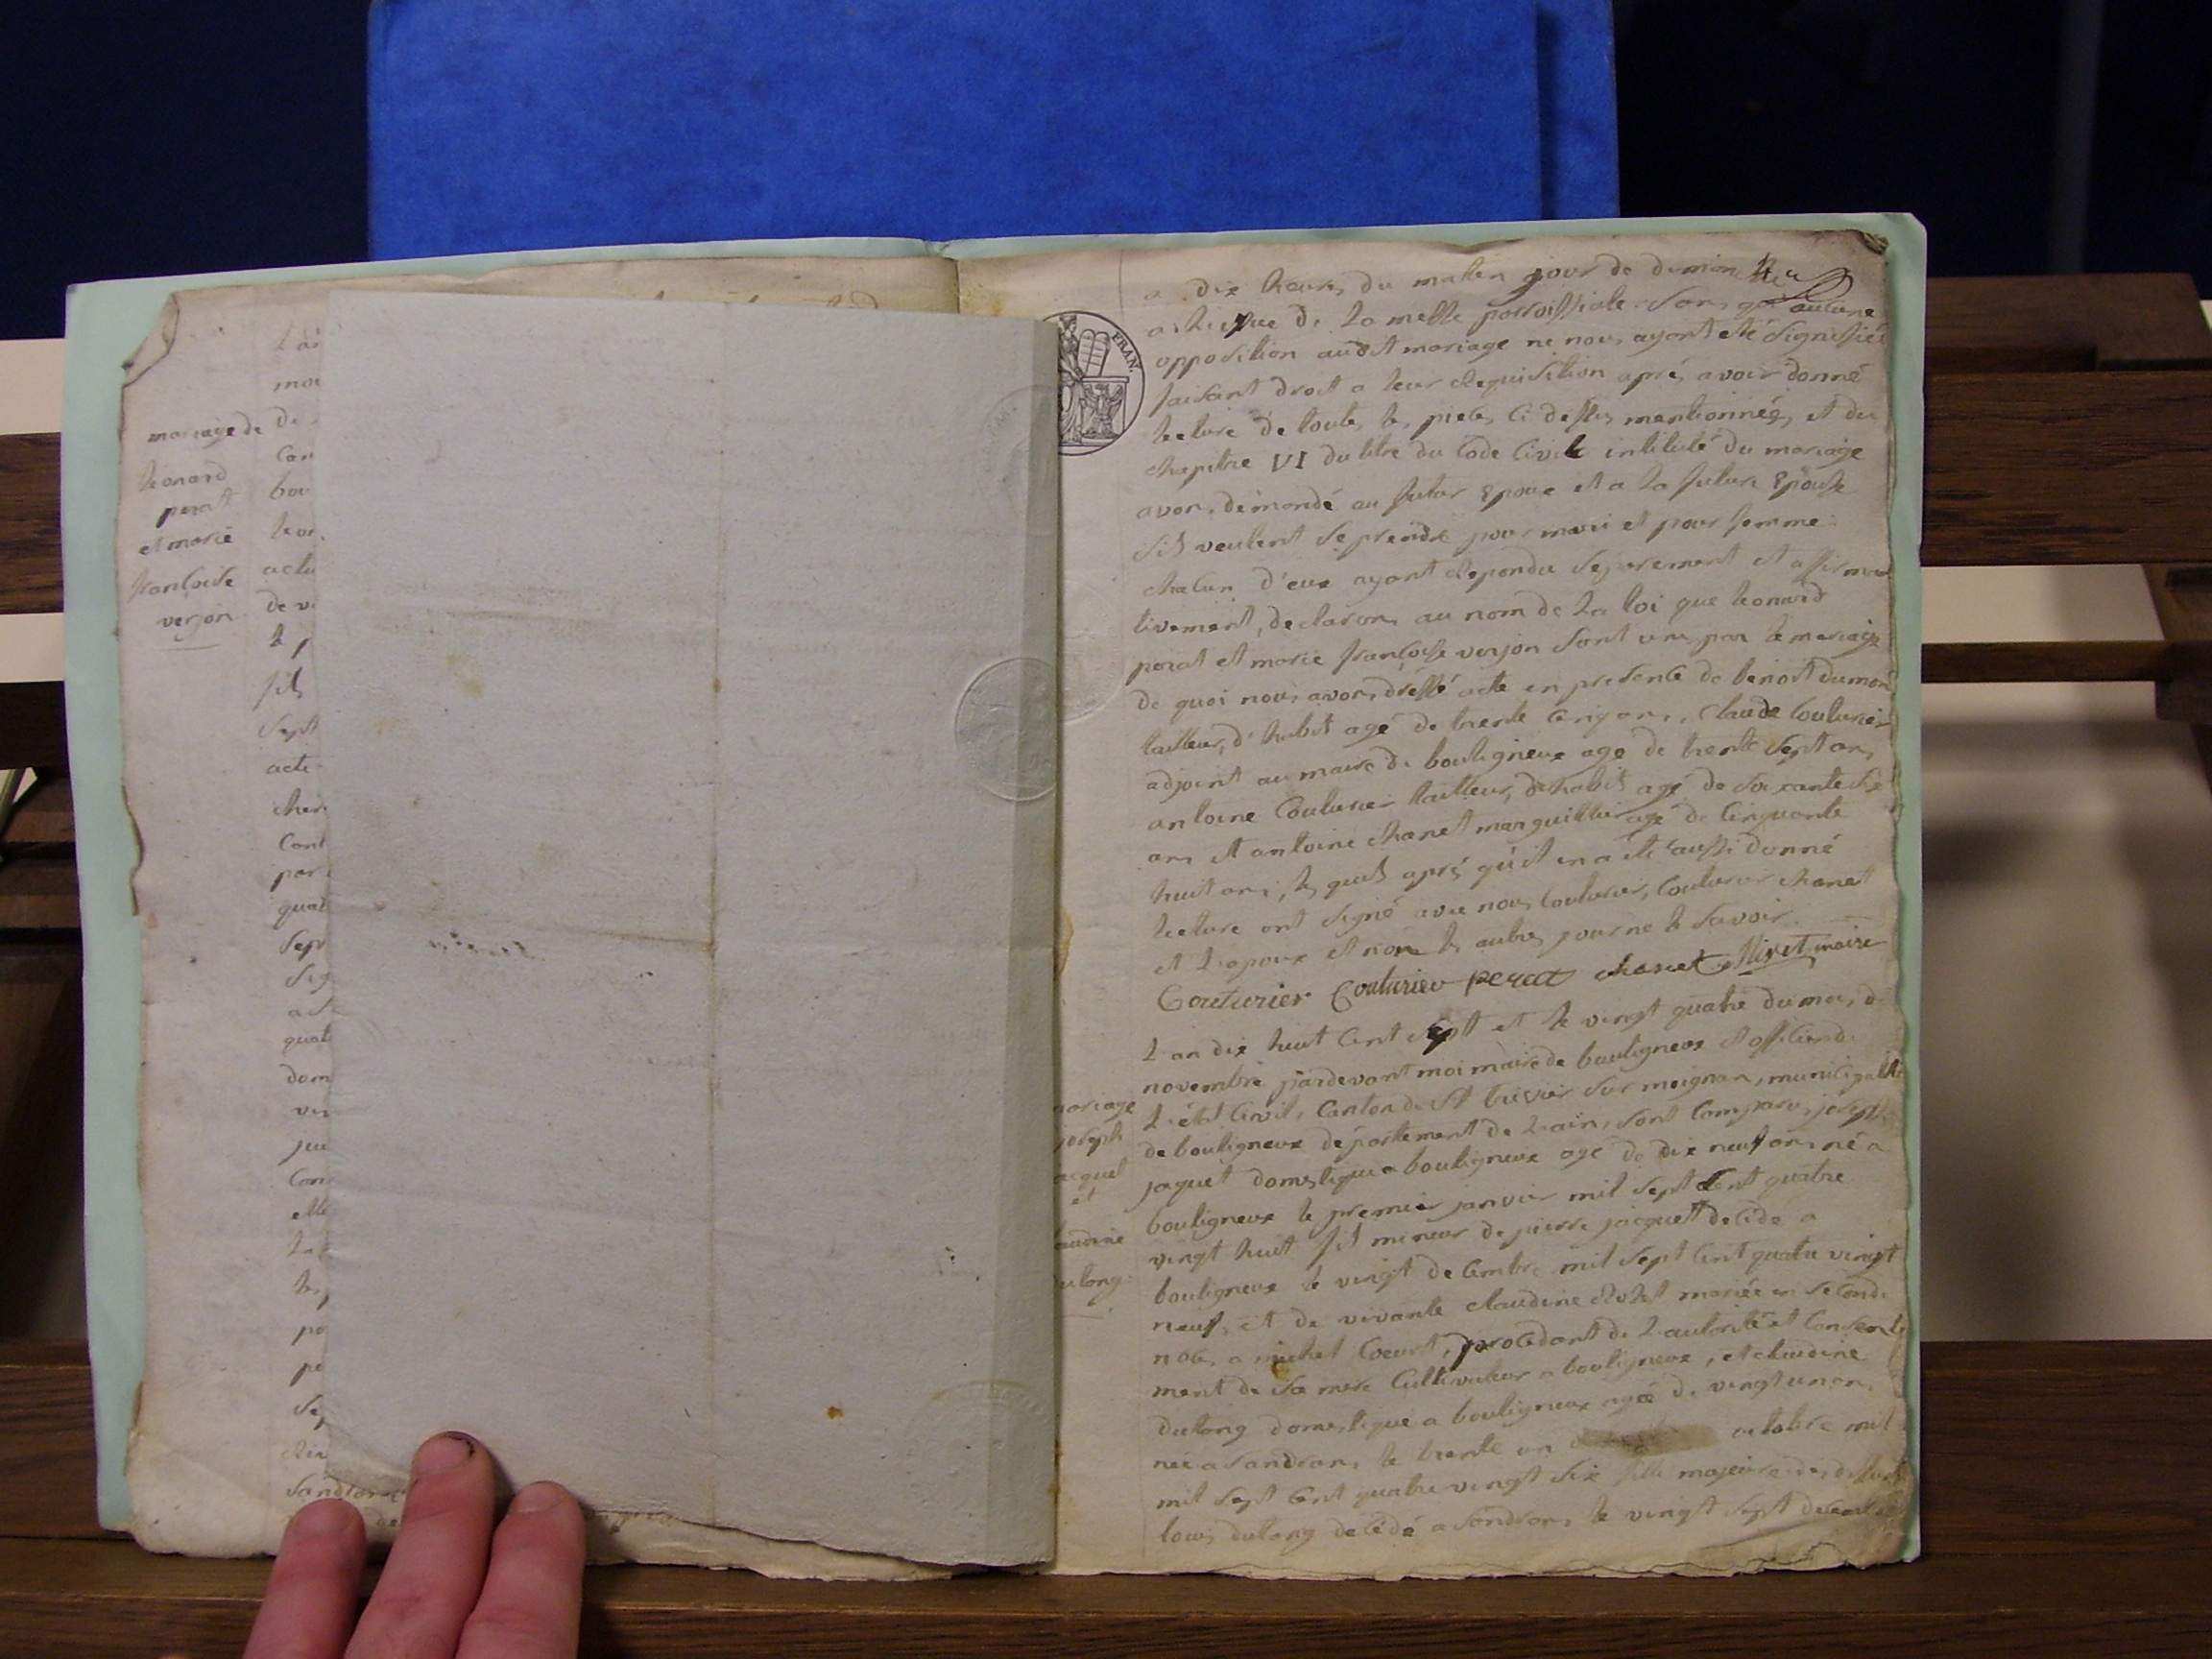 mariage de
léonard
perat
et marie
françoise
verjon
L'an
mor
de
Can
bou
acte
de vi
le p
fils
Sept
acte
cher
Cont
par
quat
Sept
Sig
quat
dom
jui
Con
elle
po
pe
Sandrans
FRAN.
a dix heures du matin jour de diman 4e
a lissue de la messe parroissiale. Sans qu'aucune
opposition audit mariage ne nous ayant eté Signiffiée
faisant droit a leur Requisition aprés avoir donné
lecture de toutes les pieces ci dessus mentionnées, et du
chapitre VI du titre du Code Civile intitulé du mariage
avons démandé au futur Epoux et a la future Epouse
S'ils veulent se prendre pour mari et pour femme;
chacun d'eux ayant Repondu Séparement et affirma
tivement, declarons au nom de la loi que leonard
perat et marie françoise verjon Sont unis par le mariage
de quoi nous avons dréssé acte en presence de benoit dumon
tailleur, d'habit agé de trente Cinq ans, Claude Couturier
adjoint au maire de bouligneux agé de trente Sept ans,
antoine Couturier tailleur, d'habit agé de Soixante Six
ans et antoine chanet marguillier agé de Cinquante
huit ans; les quels aprés qu'il en a eté aussi donné
lecture ont Signé avec nous Couturier, Couturier chanet
et l'epoux et non les autres pour ne le Savoir.
Couturier Couturier perat chanet Nivet maire
mariage
joseph
jacquet
et
claudine
dulong
L'an dix huit Cent Sept et le vingt quatre du mois de
novembre pardevant moi maire de bouligneux et officier de
L'état Civil, Canton de St trivier Sur moignan, municipalité
de bouligneux département de L'ain, Sont Comparus joseph
jaquet domestique a bouligneux agé de dix neuf ans né a
bouligneux le premier janvier mil Sept Cent quatre
vingt huit fils mineur de pierre jacquet décédé a
bouligneux le vingt decembre mil Sept Cent quatre vingt
neuf, et de vivante claudine mariée en Seconde
noce, a michel Coeurt, procedant de L'autorité et Consente
ment de Sa mere Cultivateur a bouligneux, et claudine
dulong domestique a bouligneux agée de vingt un an,
née a Sandrans le trente un octobre mil
mil Sept Cent quatre vingt Six fille majeure de deffunt
louis dulong decédé a Sandrans le vingt Sept decembre